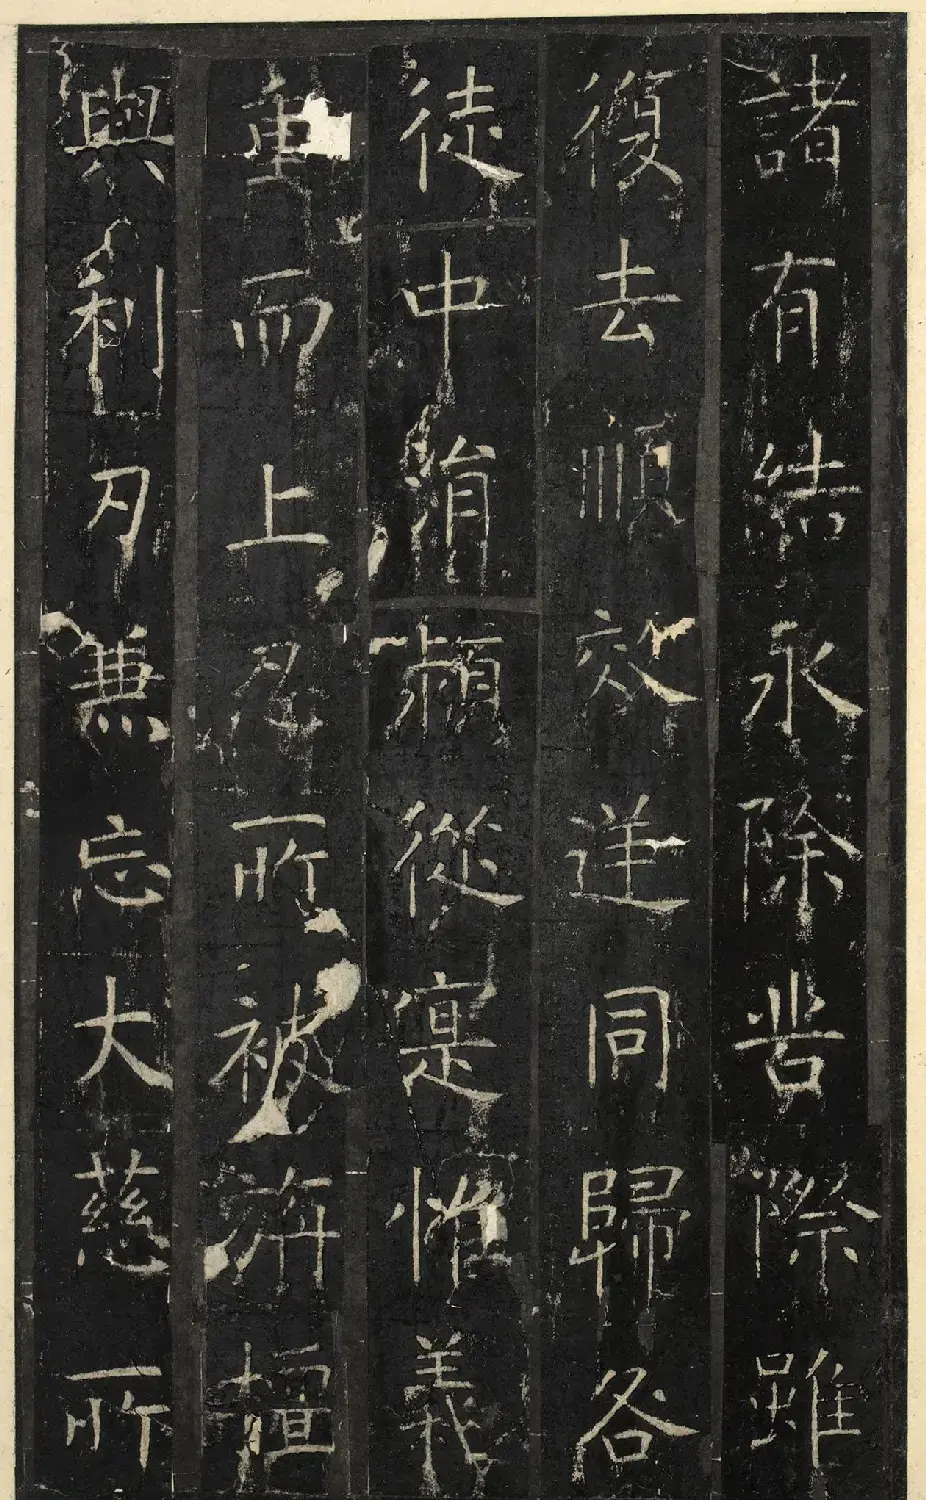 諸有結永除苦際雖
復去順效逆同歸各
徒中頻從寔惟義
重而上忍所被旃檀
與利刃兼忘大慈所